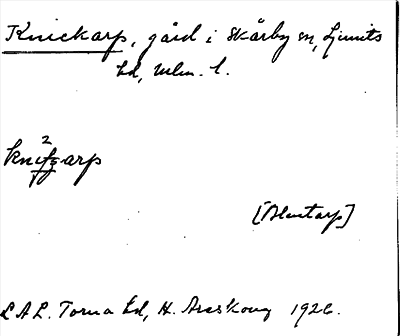 Knickarp, gård i Skårby sn, Ljunits
hd, Mlm. l.
2
knifgarp
[Blentarp]
L.A.L. Torna hd, H. Areskoug 1926.